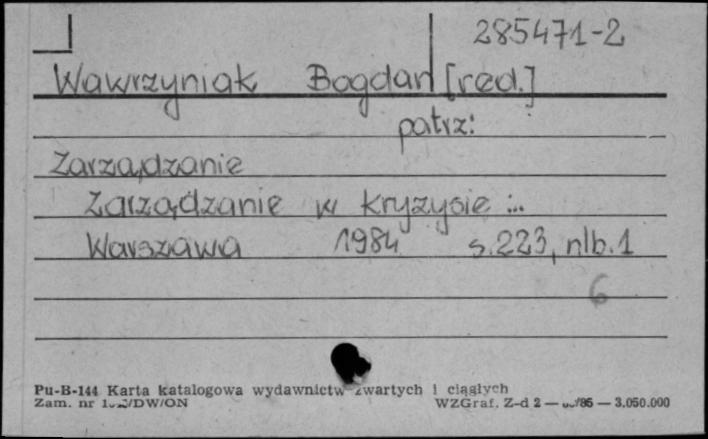 285471-2
Wawrzyniak Bogdan [red.]
patrz:
Zarządzanie
Zarządzanie w kryzysie ...
Warszawa 1984 s. 223, nlb. 1
6
Pu-B-144 Karta katalogowa wydawnictw zwartych i ciągłych
Zam. nr WZGraf. Z-d 2 — 3.050.000